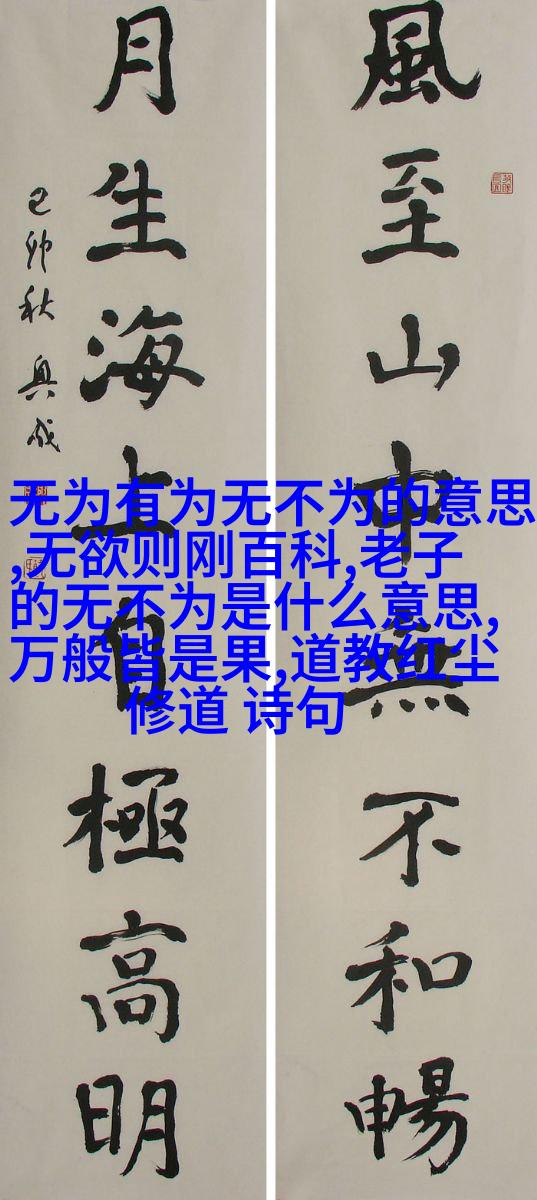 風至山中無不和暢
月生海上自極高明
己卯秋 興成
无为有为无不为的意思
,无欲则刚百科,老子
的无不为是什么意思,
万般皆是果,道教红尘
修道 诗句